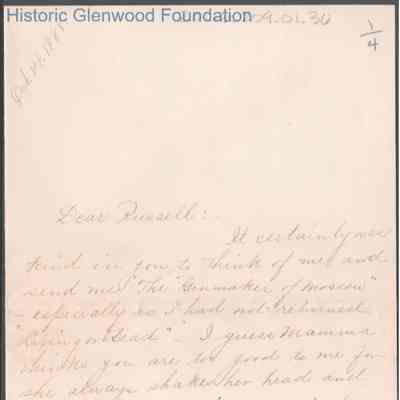 Historic Glenwood Foundation
09.01.30
1/4
Dear Russell:
It certainly was
kind in you to think of me and
send me "The Gunmaker of Moscow"
- especially as I had not returned
"Living or Dead". I guess Mamma
thinks you are too good to me for
she always shakes her head and